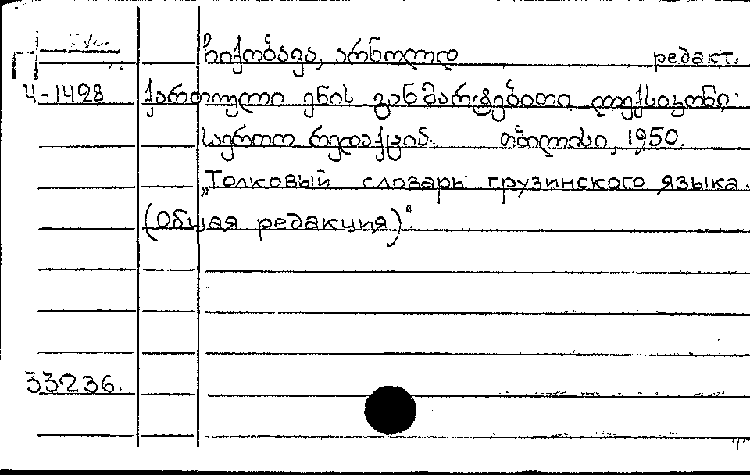 ჩიქობავა, არნოლდ редакт.
Ч-1498 ქართული ენის განმარტებითი ლექსიკონი:
საერთო რედაქციინ. თბილისი, 1950.
„Толковый словарь грузинского языка.
(Общая редакция)“.
33236.